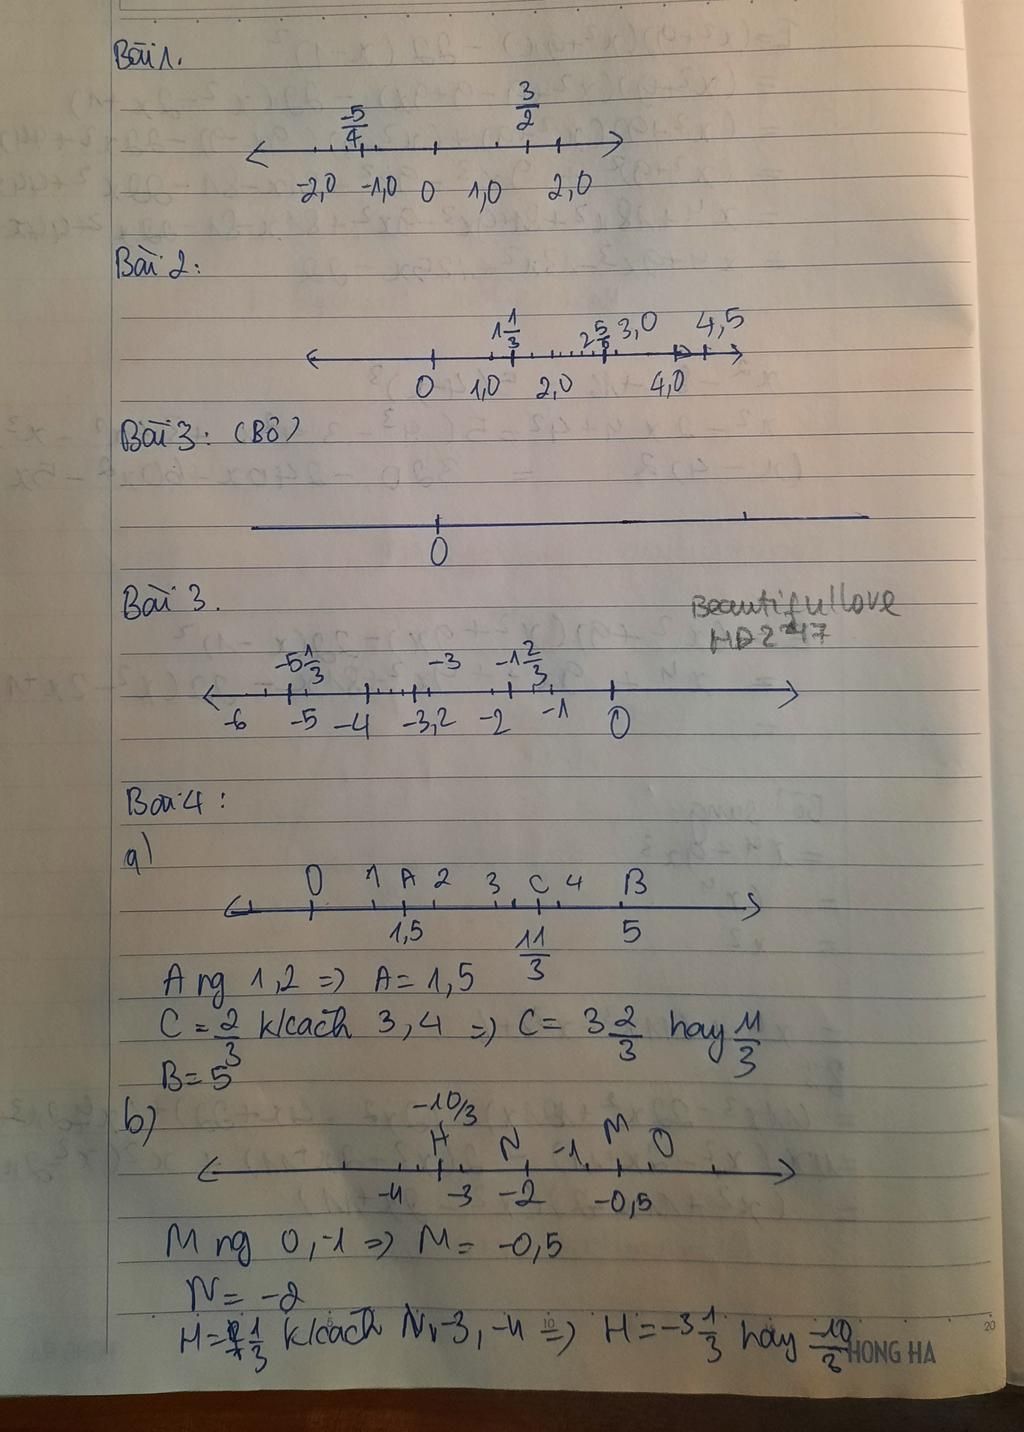 Bài 1.
-5/4 3/2
-2,0 -1,0 0 1,0 2,0
Bài 2:
1 1/3 2 5/6 3,0 4,5
0 1,0 2,0 4,0
Bài 3: (Bỏ)
0
Bài 3.
Beautifullove
MD2247
-5 1/3 -3 -1 2/3
-6 -5 -4 -3,2 -2 -1 0
Bài 4:
a)
0 1 A 2 3 C 4 B
1,5 11/3 5
A ng 1,2 => A = 1,5
C = 2/3 k/cách 3, 4 => C = 3 2/3 hay 11/3
B = 5
b)
-10/3
H N -1 M 0
-4 -3 -2 -0,5
M ng 0, -1 => M = -0,5
N = -2
H = 1/3 k/cách -3, -4 => H = -3 1/3 hay -10/3
HONG HA
20